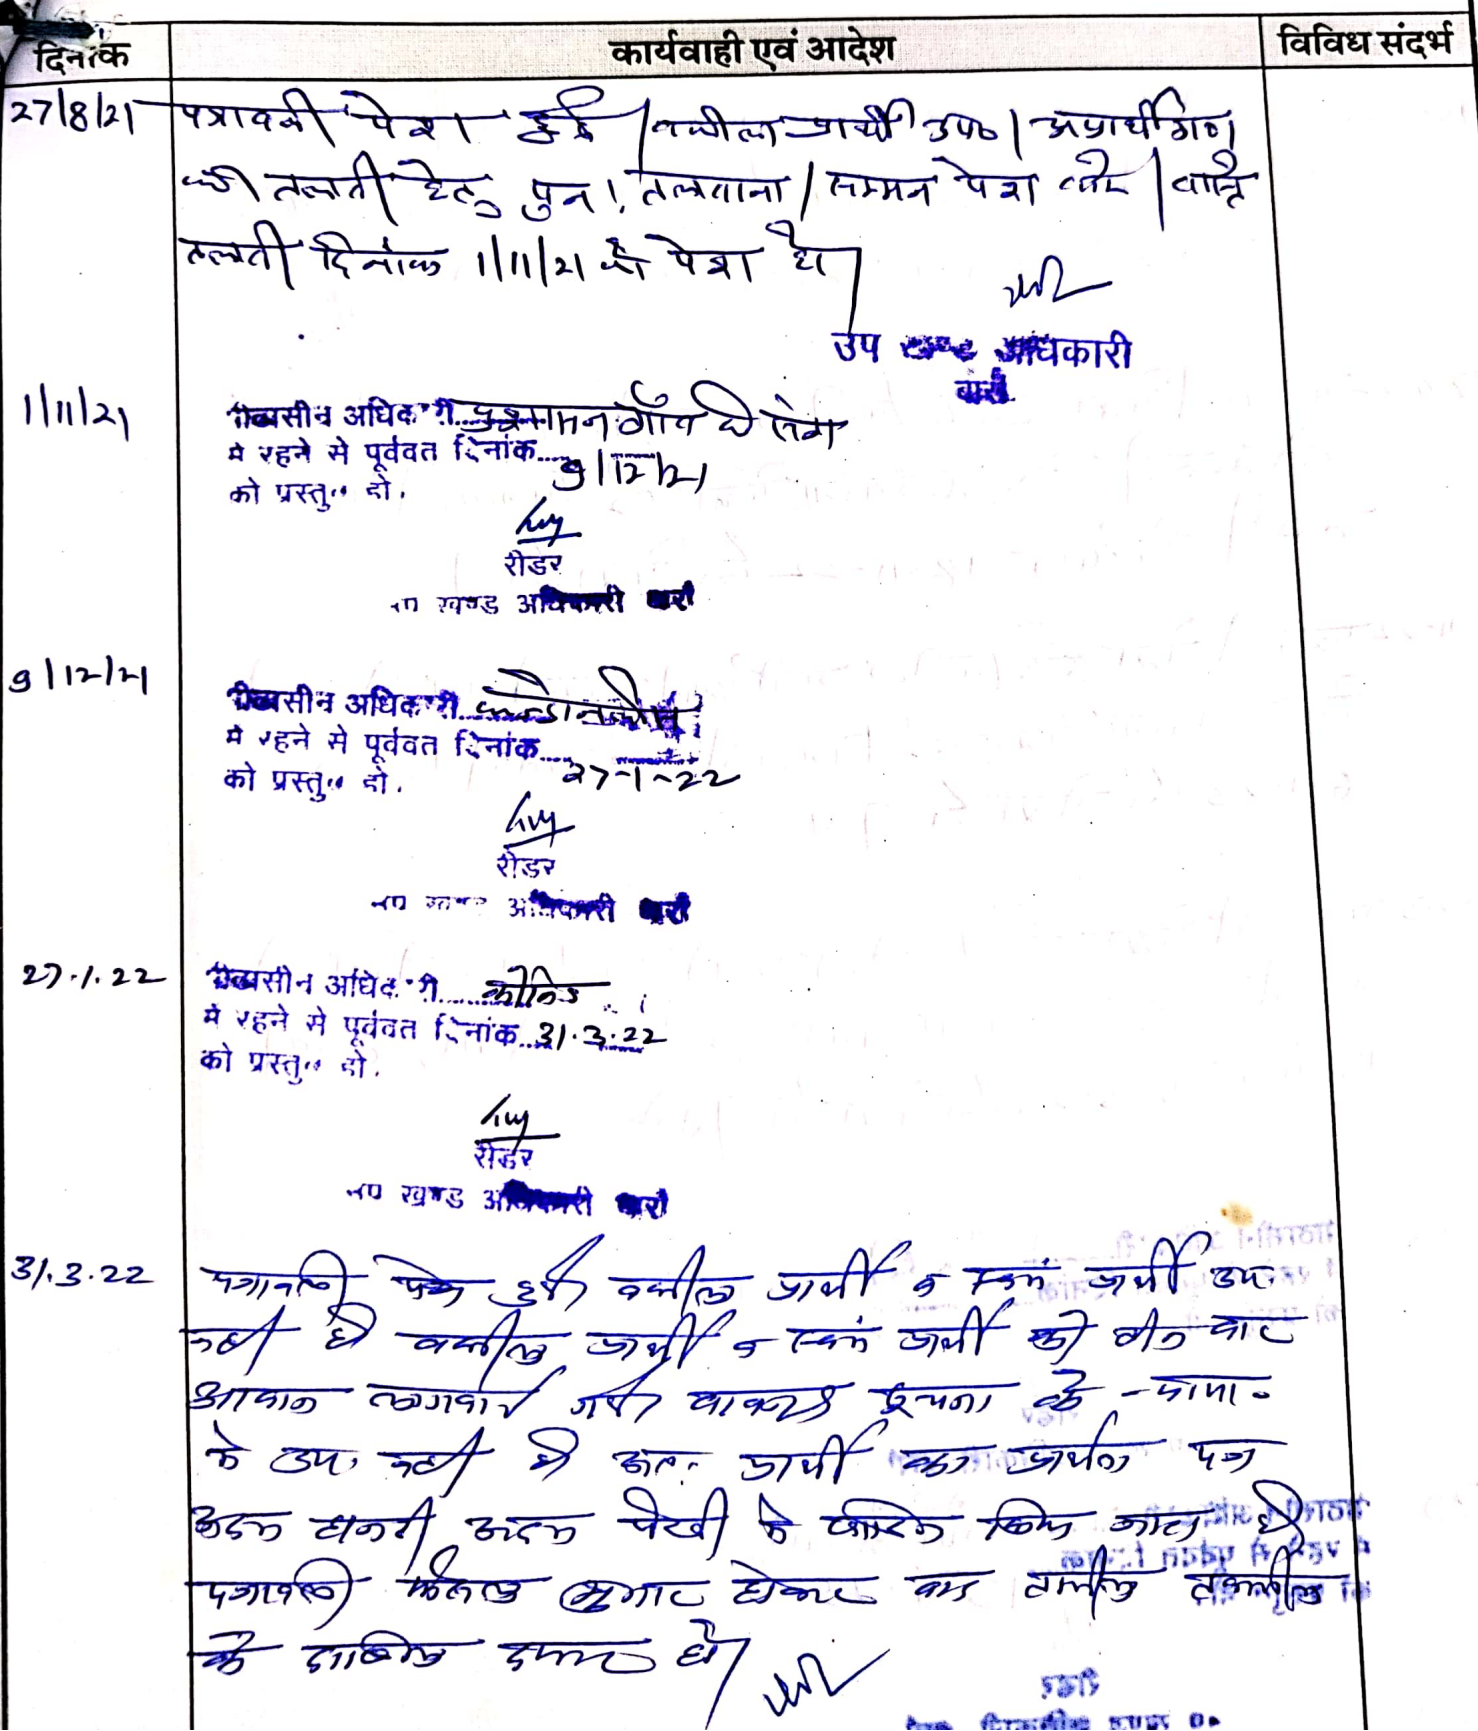 दिनांक कार्यवाही एवं आदेश विविध संदर्भ
27/8/21 पत्रावली पेश हुई | वकील प्रार्थी उप० | अप्रार्थीगण
की तलबी हेतु पुन: तलवाना | सम्मन पेश करे | वास्ते
तलबी दिनांक 1/11/21 को पेश हो |
उप खण्ड अधिकारी
बारां
1/11/21 पीठासीन अधिकारी प्रशासन गाँव के संग
मे रहने से पूर्ववत दिनांक 9/12/21
को प्रस्तुत हो.
रीडर
उप खण्ड अधिकारी बारां
9/12/21 पीठासीन अधिकारी
मे रहने से पूर्ववत दिनांक 27-1-22
को प्रस्तुत हो.
रीडर
उप खण्ड अधिकारी बारां
27.1.22 पीठासीन अधिकारी कोविड
मे रहने से पूर्ववत दिनांक 31.3.22
को प्रस्तुत हो.
रीडर
उप खण्ड अधिकारी बारां
31.3.22 पत्रावली पेश हुई वकील प्रार्थी व स्वयं प्रार्थी उप.
नही है वकील प्रार्थी व स्वयं प्रार्थी को तीन बार
आवाज लगवाई गई बावजूद सूचना के
उप. नही है अत: प्रार्थी का प्रार्थना पत्र
अदम हाजरी अदम पैरवी मे खारिज किया जाता है
पत्रावली फैसल शुमार होकर बाद तामील तकमील
के दाखिल दफ्तर हो |